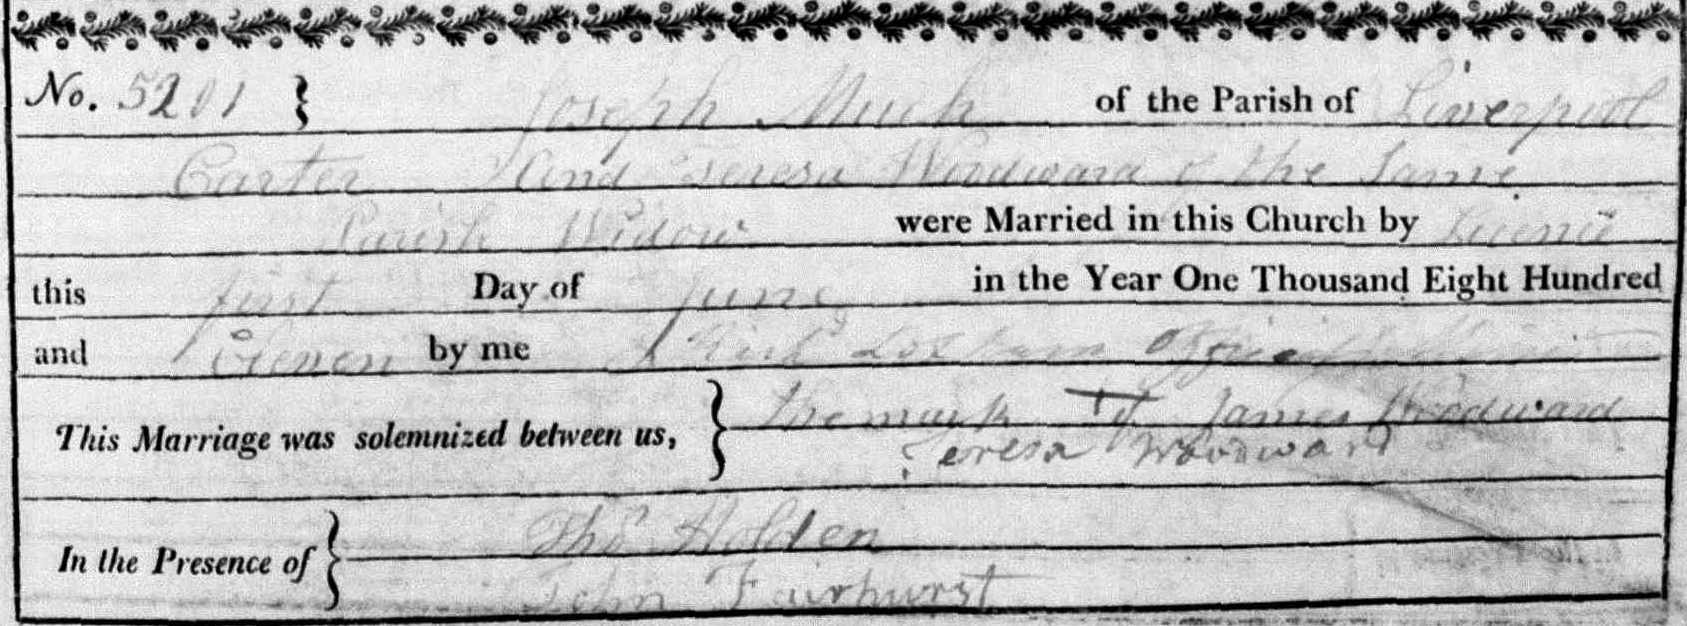 No. 5201 } Joseph Much of the Parish of Liverpool
Carter And Teresa Woodward of the Same
Parish Widow were Married in this Church by Licence
this first Day of June in the Year One Thousand Eight Hundred
and Eleven by me
This Marriage was solemnized between us, } the mark + of James Woodward
Teresa Woodward
In the Presence of } Thos Holden
John Fairhurst